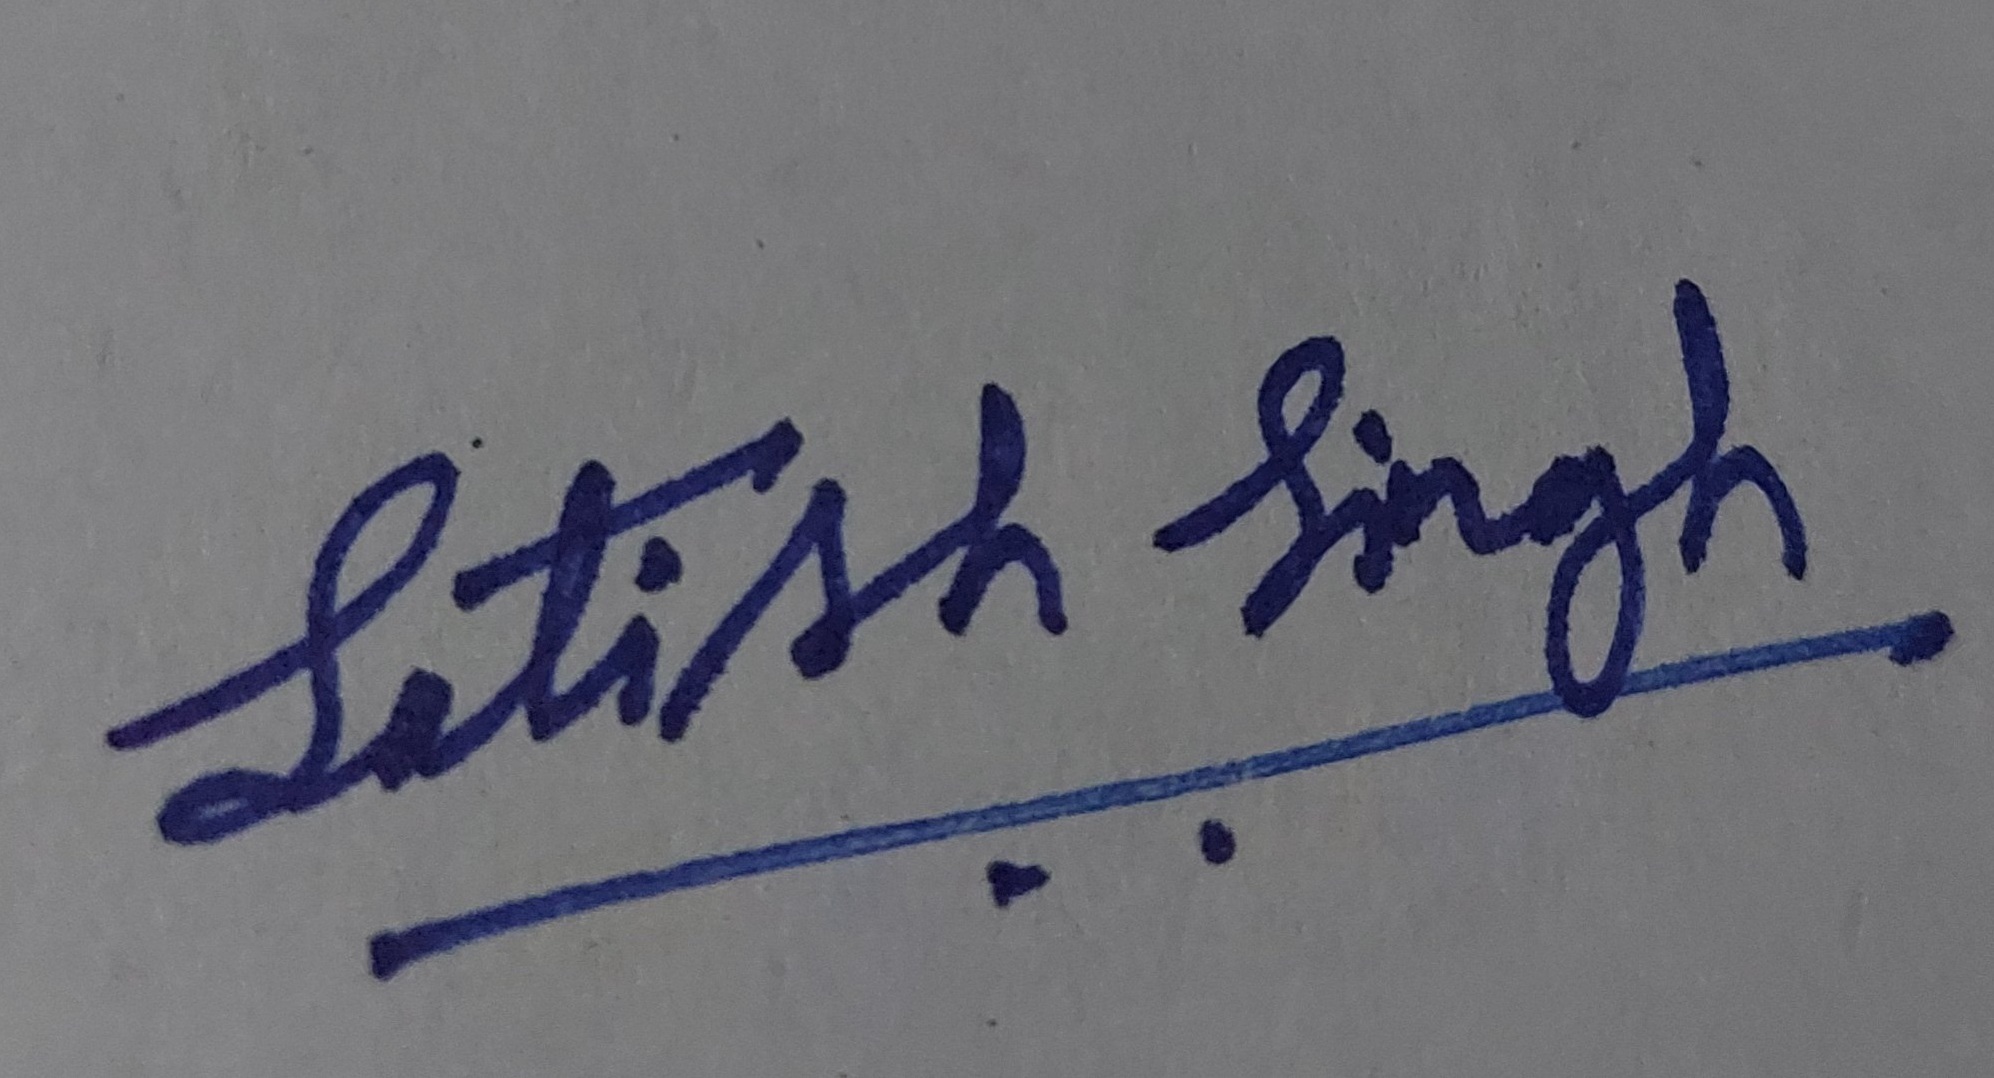 Satish Singh